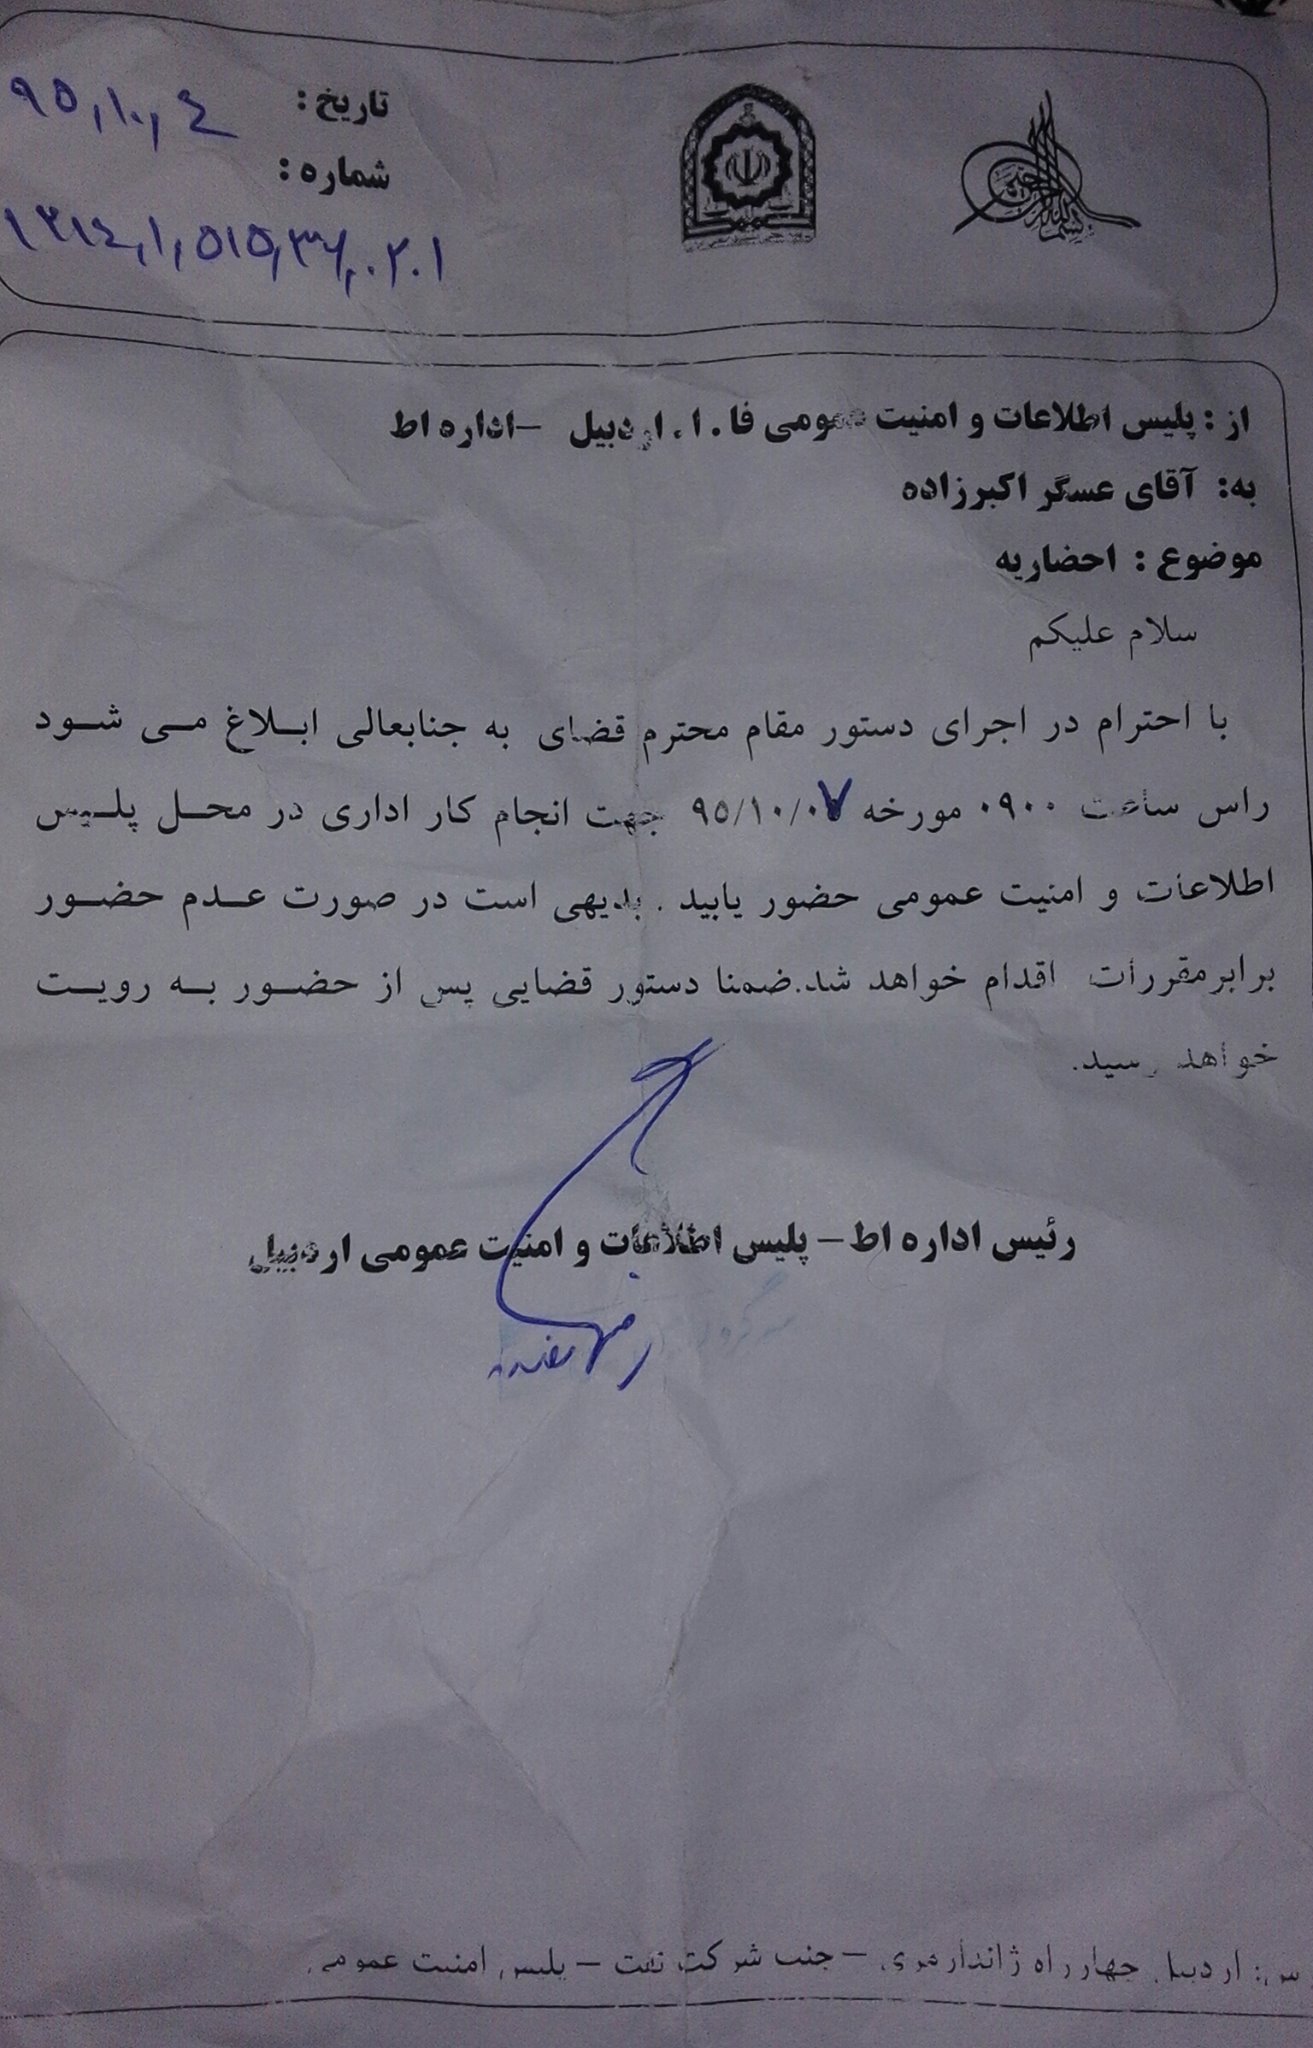 تاریخ : ۹۵,۱۰,۴
شماره :
از : پلیس اطلاعات و امنیت عمومی فا . ا . اردبیل – اداره اط
به: آقای عسگر اکبرزاده
موضوع : احضاریه
سلام علیکم
با احترام در اجرای دستور مقام محترم قضای به جنابعالی ابلاغ می شود
راس ساعت ۰۹۰۰ مورخه ۹۵/۱۰/۰۷ جهت انجام کار اداری در محل پلیس
اطلاعات و امنیت عمومی حضور یابید . بدیهی است در صورت عدم حضور
برابرمقررات اقدام خواهد شد.ضمنا دستور قضایی پس از حضور به رویت
خواهد رسید.
رئیس اداره اط – پلیس اطلاعات و امنیت عمومی اردبیل
اردبیل چهارراه ژاندارمری – جنب شرکت نفت – پلیس امنیت عمومی